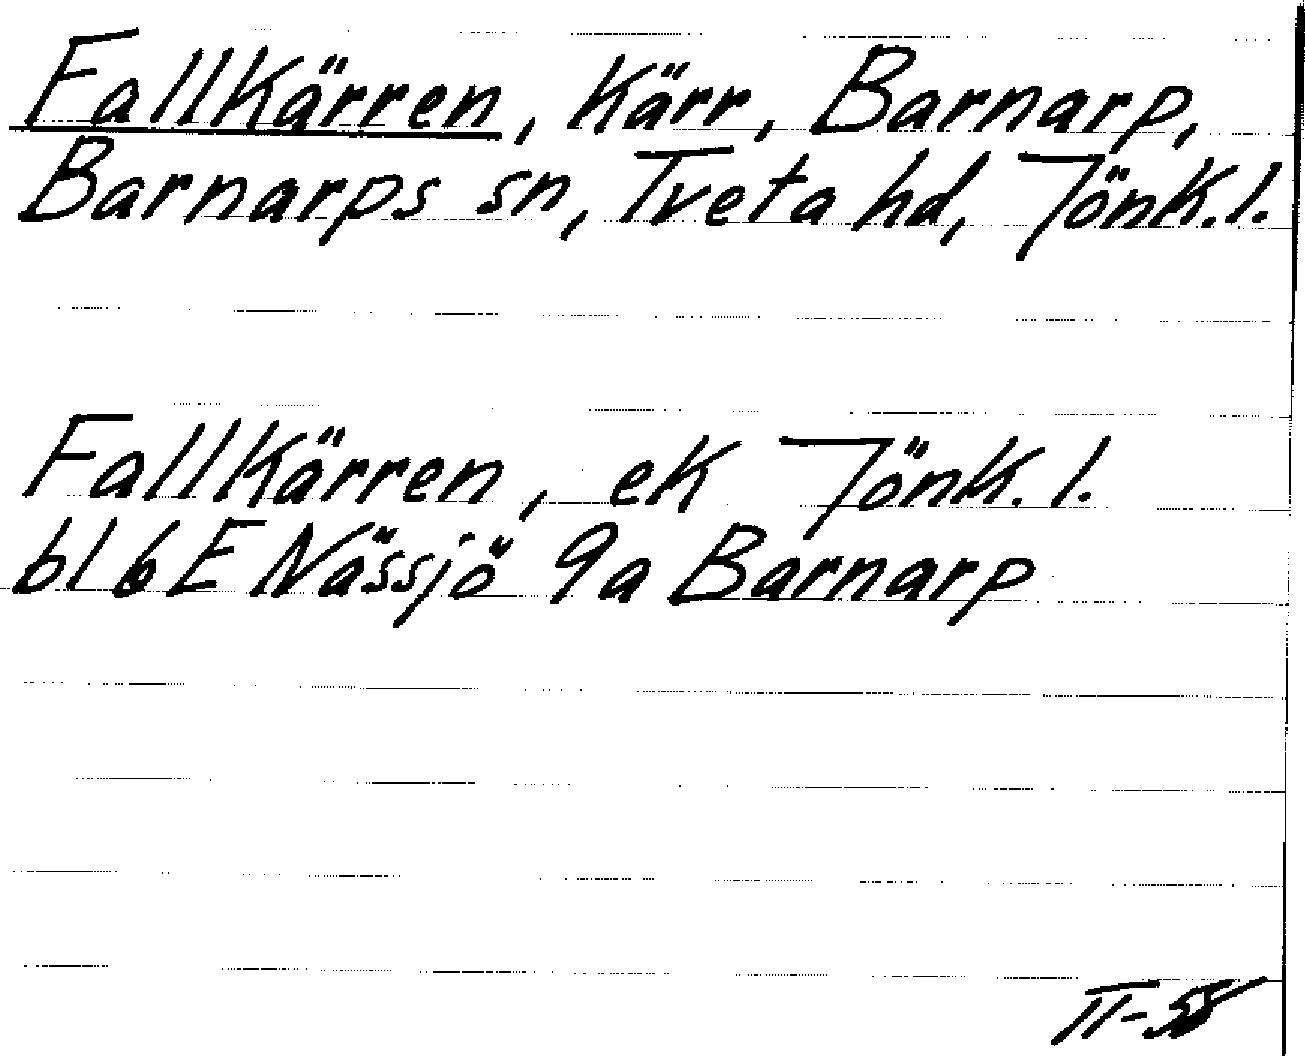 Fallkärren, kärr, Barnarp,
Barnarps sn, Tveta hd, Jönk.l.
Fallkärren, ek Jönk.l.
bl 6E Nässjö 9a Barnarp